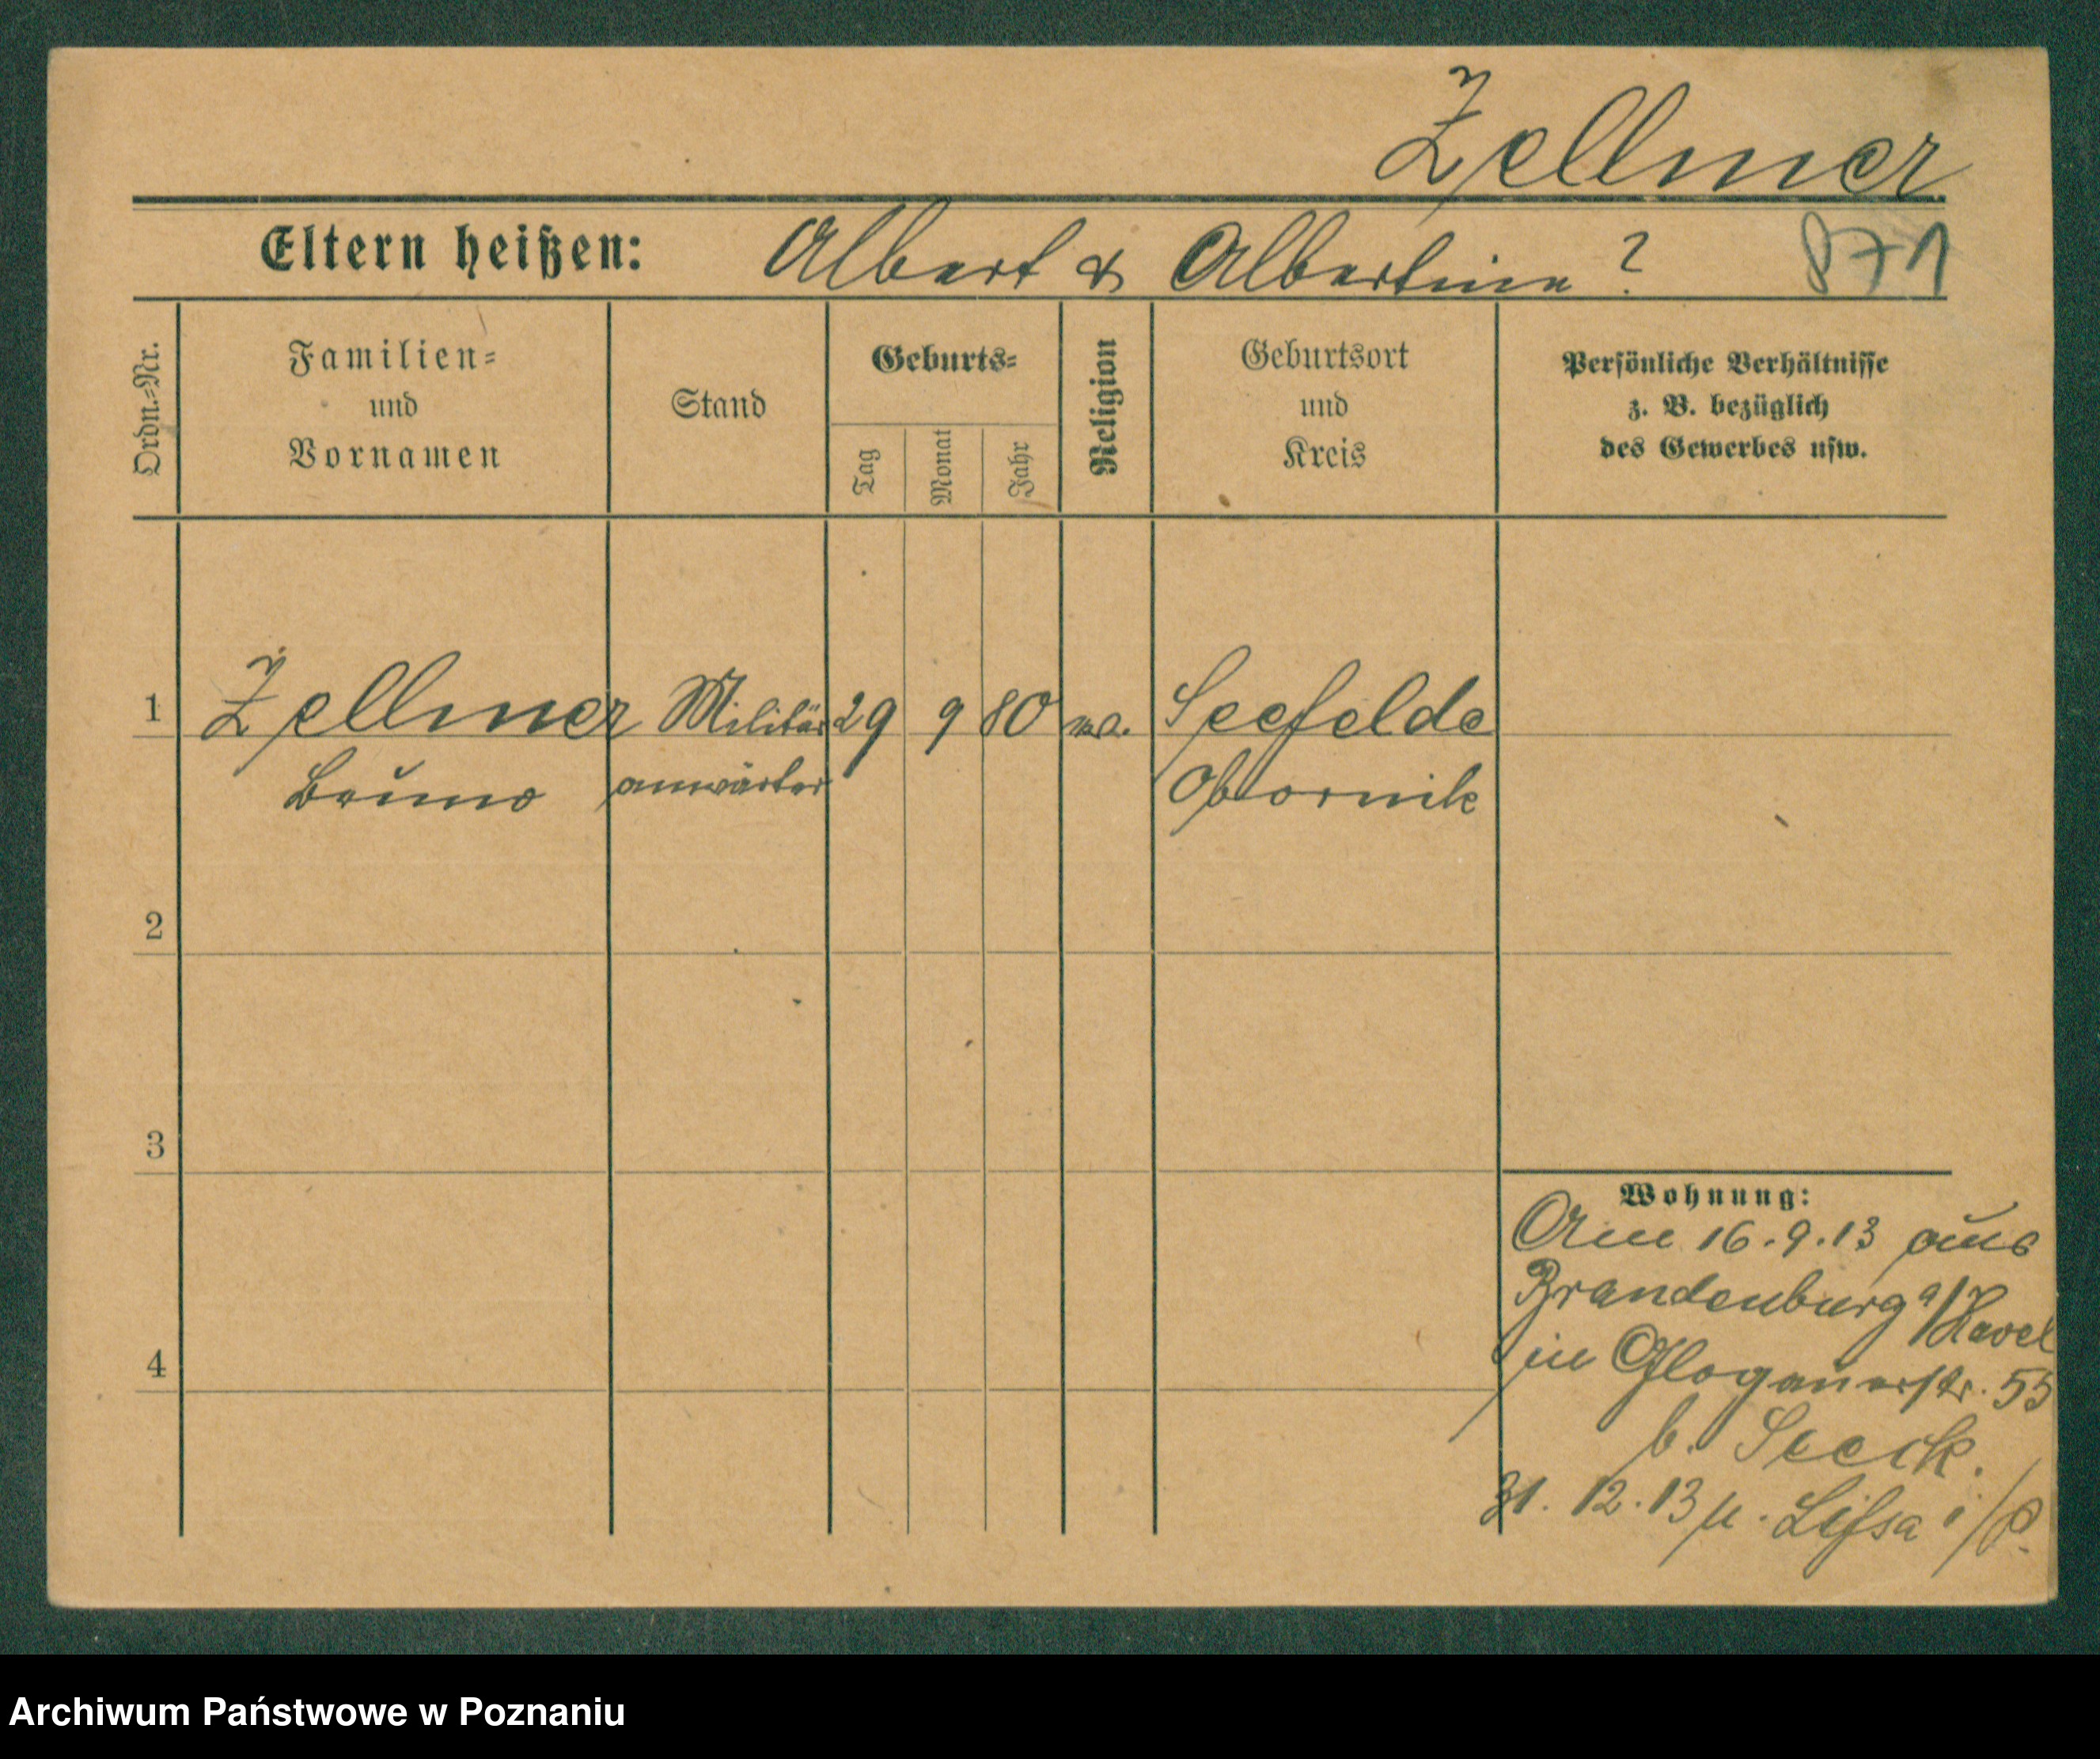 Zellmer
Eltern heißen: Albert & Albertine ? 871
Ordn.-Nr.
Familien-
und
Vornamen
Stand
Geburts-
Tag
Monat
Jahr
Religion
Geburtsort
und
Kreis
Persönliche Verhältnisse
z. B. bezüglich
des Gewerbes usw.
1 Zellmer Militär 29 9 80 Seefelde
Bruno anwärter Obornik
2
3
4
Wohnung:
Am 16.9.13 aus
Brandenburg a/Havel
in Glogauerstr. 55
b. Seeck.
31.12.13 Lissa i/P.
Archiwum Państwowe w Poznaniu